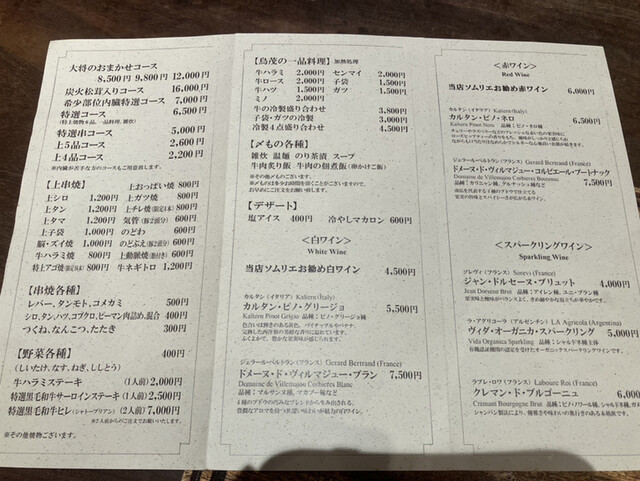 大将のおまかせコース
8,500円 9,800円 12,000円
炭火松茸入りコース 16,000円
希少部位内臓特選コース 7,000円
特選コース 6,500円
特選串コース 5,000円
上5品コース 2,600円
上4品コース 2,200円
※内臓が苦手な方のコースもご用意致します。
【上串焼】 上おっぱい焼 800円
上シロ 1,200円 上ガツ焼 800円
上タン 1,200円 上チレ焼 800円
上タマ 1,200円 気管 600円
上子袋 1,000円 のどわ 600円
脳・ズイ焼 1,000円 のどぶえ 600円
牛ハラミ焼 800円 上動脈焼 600円
特上アゴ焼 800円 牛ネギトロ 1,200円
【串焼各種】
レバー、タンモト、コメカミ 500円
シロ、タン、ハツ、コブクロ、ピーマン肉詰め、混合 400円
つくね、なんこつ、たたき 300円
【野菜各種】 400円
(しいたけ、なす、ねぎ、ししとう)
牛ハラミステーキ (1人前) 2,000円
特選黒毛和牛サーロインステーキ (1人前) 2,500円
特選黒毛和牛ヒレ(シャトーブリアン) (2人前) 7,000円
※2人前からのご注文でお願いいたします。
※その他焼物ございます。
【鳥茂の一品料理】 加熱処理
牛ハラミ 2,000円 センマイ 2,000円
牛ロース 2,000円 子袋 1,500円
牛ハツ 1,500円 ガツ 1,500円
ミノ 2,000円
牛の冷製盛り合わせ 3,800円
子袋・ガツの冷製 3,000円
冷製4点盛り合わせ 4,500円
【〆もの各種】
雑炊 温麺 のり茶漬 スープ
牛肉炙り飯 牛肉の佃煮飯(卵かけご飯)
※その他〆もございます。
※〆ものは多少お時間を頂くことがございますので、
お早めにご注文をお願い致します。
【デザート】
塩アイス 400円 冷やしマカロン 600円
<白ワイン>
White Wine
当店ソムリエお勧め白ワイン 4,500円
カルタン(イタリア) Kaltern(Italy)
カルタン・ピノ・グリージョ 5,500円
Kaltern Pinot Grigio 品種:ピノ・グリージョ種
ジェラール・ベルトラン(フランス) Gerard Bertrand (France)
ドメーヌ・ド・ヴィルマジュー・ブラン 7,500円
Domaine de Villemajou Corbieres Blanc
<赤ワイン>
Red Wine
当店ソムリエお勧め赤ワイン 6,000円
カルタン(イタリア) Kaltern(Italy)
カルタン・ピノ・ネロ 6,500円
Kaltern Pinot Nero 品種:ピノ・ネロ種
ジェラール・ベルトラン(フランス) Gerard Bertrand (France)
ドメーヌ・ド・ヴィルマジュー・コルビエール・ブートナック
7,500円
<スパークリングワイン>
Sparkling Wine
ソレヴィ(フランス) Sorevi (France)
ジャン・ドルセーヌ・ブリュット 4,000円
Jean Dorsene Brut 品種:アイレン種、ユニ・ブラン種
ラ・アグリコーラ(アルゼンチン) LA Agricola (Argentina)
ヴィダ・オーガニカ・スパークリング 5,000円
Vida Organica Sparkling 品種:シャルドネ種主体
有機認証機関の認定を受けたオーガニックスパークリングワインです。
ラブレ・ロワ(フランス) Laboure Roi (France)
クレマン・ド・ブルゴーニュ 6,000